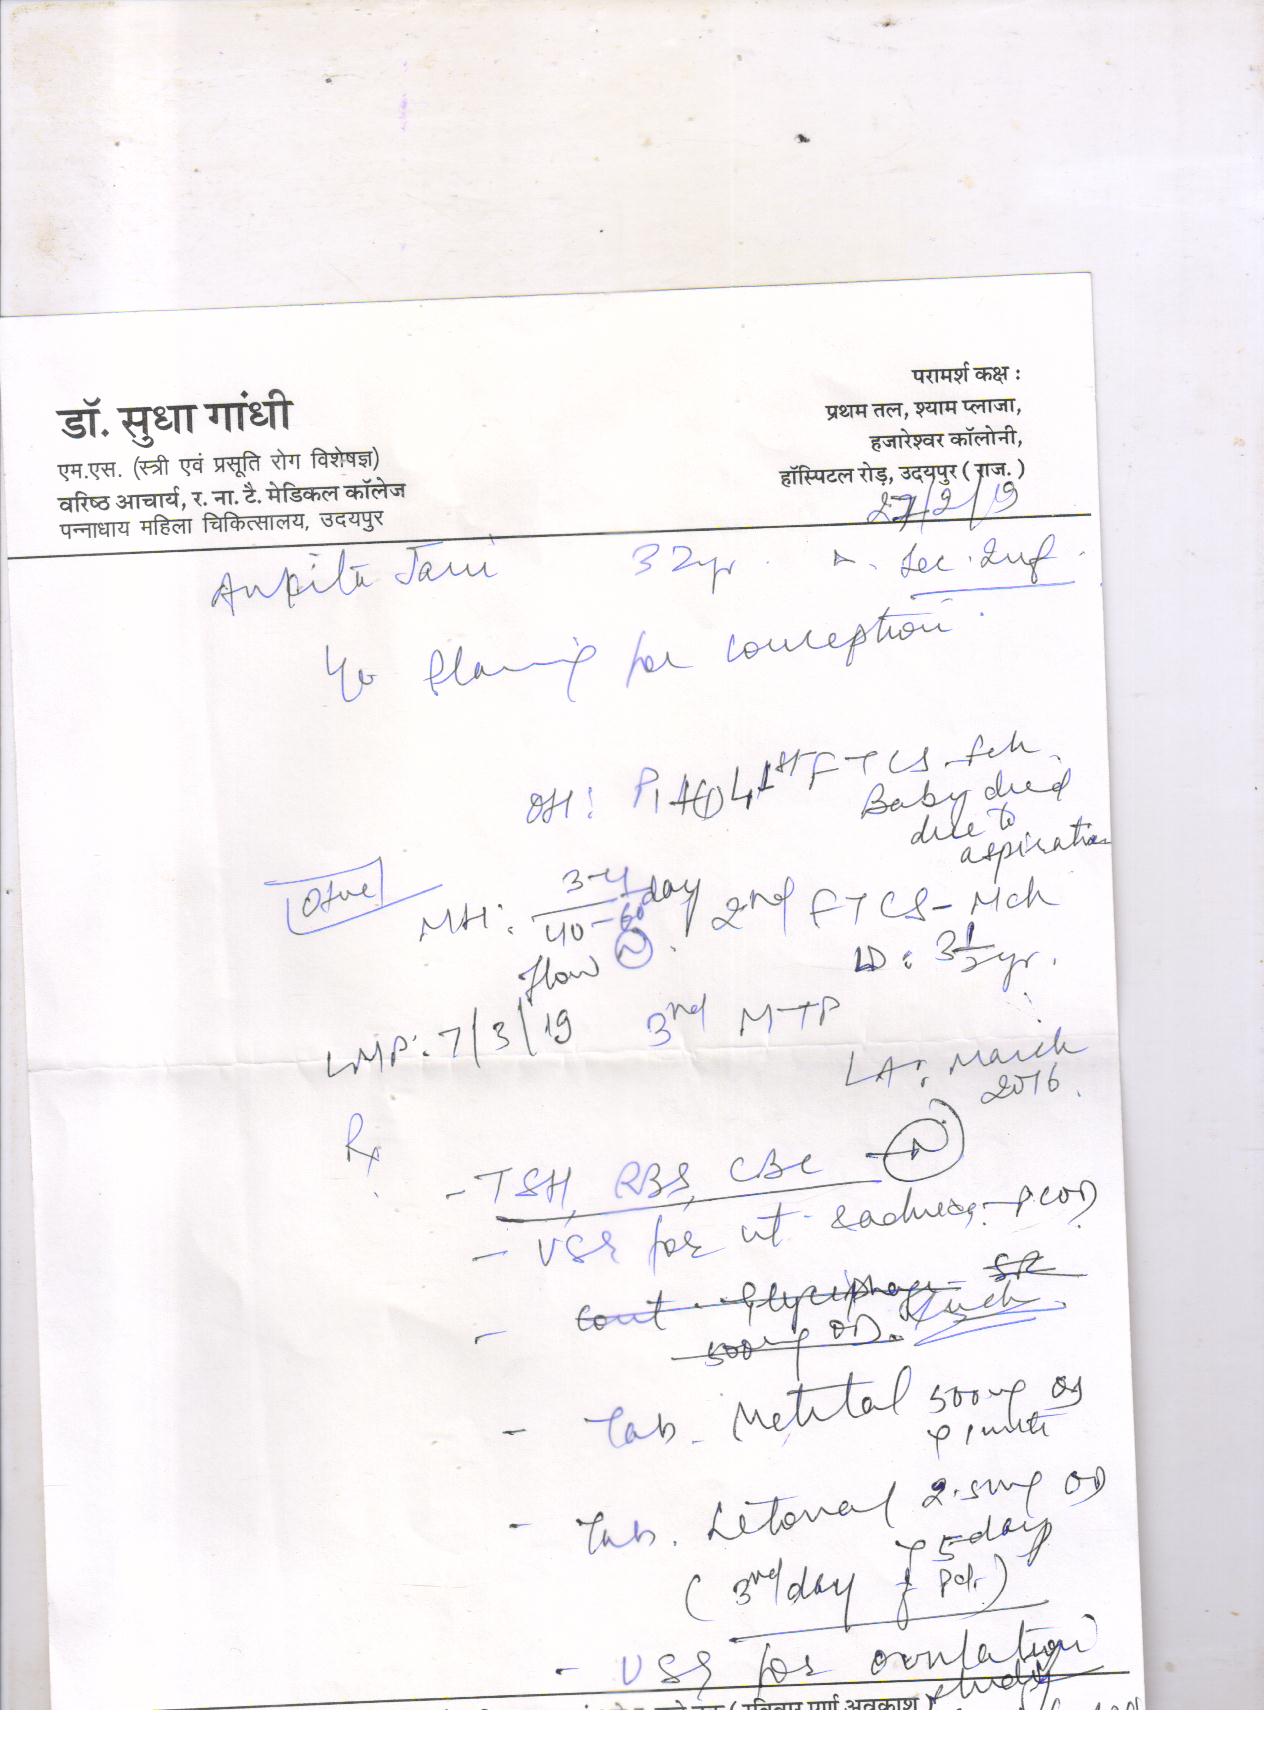 डॉ. सुधा गांधी
एम.एस. (स्त्री एवं प्रसूति रोग विशेषज्ञ)
वरिष्ठ आचार्य, र. ना. टै. मेडिकल कॉलेज
पन्नाधाय महिला चिकित्सालय, उदयपुर
परामर्श कक्ष :
प्रथम तल, श्याम प्लाजा,
हजारेश्वर कॉलोनी,
हॉस्पिटल रोड़, उदयपुर ( राज. )
27/2/19
Ankita Jani 32yr. Sec. Inf.
for conception
OH: FTCS
Baby died
due to
aspiration
MH: 3-4 day
40-60
flow N
2nd FTCS - Mch
LD: 3 1/2 yr.
LMP: 7/3/19 3rd MTP
LA: March
2016.
Rx
- TSH, RBS, CBC - N
- USG for PCOD
- Cont. Glyciphage SR
500mg OD.
- Tab. 500mg
- Tab. 2.5mg OD
5 day
(3rd day of Pd.)
- USG for ovulation
study
( रविवार पूर्ण अवकाश )